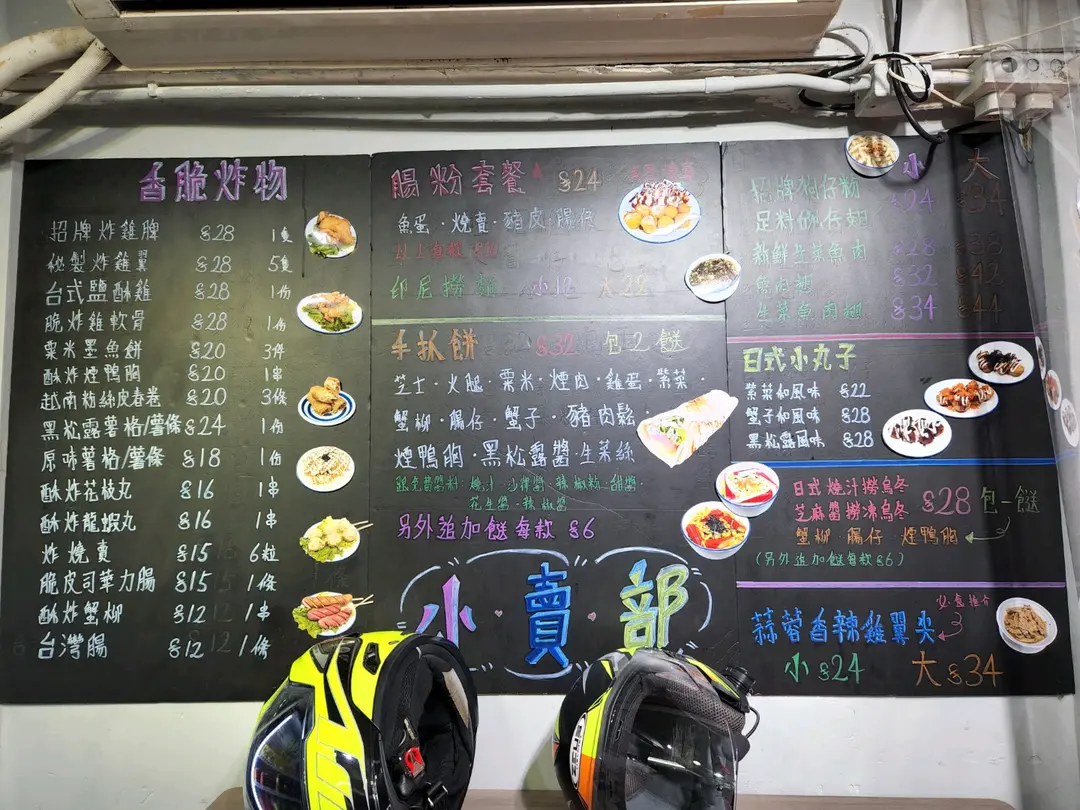 香脆炸物
招牌炸雞髀 $28 1隻
秘製炸雞翼 $28 5隻
台式鹽酥雞 $28 1份
脆炸雞軟骨 $28 1份
粟米墨魚餅 $20 3件
酥炸煙鴨胸 $20 1串
越南粉絲皮春卷 $20 3條
黑松露薯格/薯條 $24 1份
原味薯格/薯條 $18 1份
酥炸花枝丸 $16 1串
酥炸龍蝦丸 $16 1串
炸燒賣 $15 6粒
脆皮司華力腸 $15 1條
酥炸蟹柳 $12 1串
台灣腸 $12 1條
腸粉套餐 $24
魚蛋·燒賣·豬皮/腸仔
印尼撈麵 小18 大28
手抓餅 $32 包2餸
芝士·火腿·粟米·煙肉·雞蛋·紫菜·
蟹柳·腸仔·蟹子·豬肉鬆·
煙鴨胸·黑松露醬·生菜絲
花生醬·辣椒醬
另外追加餸每款 $6
小賣部
小 大
招牌狗仔粉 $24 $34
足料碗仔翅
新鮮生菜魚肉 $28
$32 $42
生菜魚肉翅 $34 $44
日式小丸子
紫菜和風味 $22
蟹子和風味 $28
黑松露風味 $28
日式燒汁撈烏冬
芝麻醬撈凍烏冬 $28 包一餸
蟹柳 腸仔 煙鴨胸
(另外追加餸每款$6)
蒜蓉香辣雞翼尖
小$24 大$34